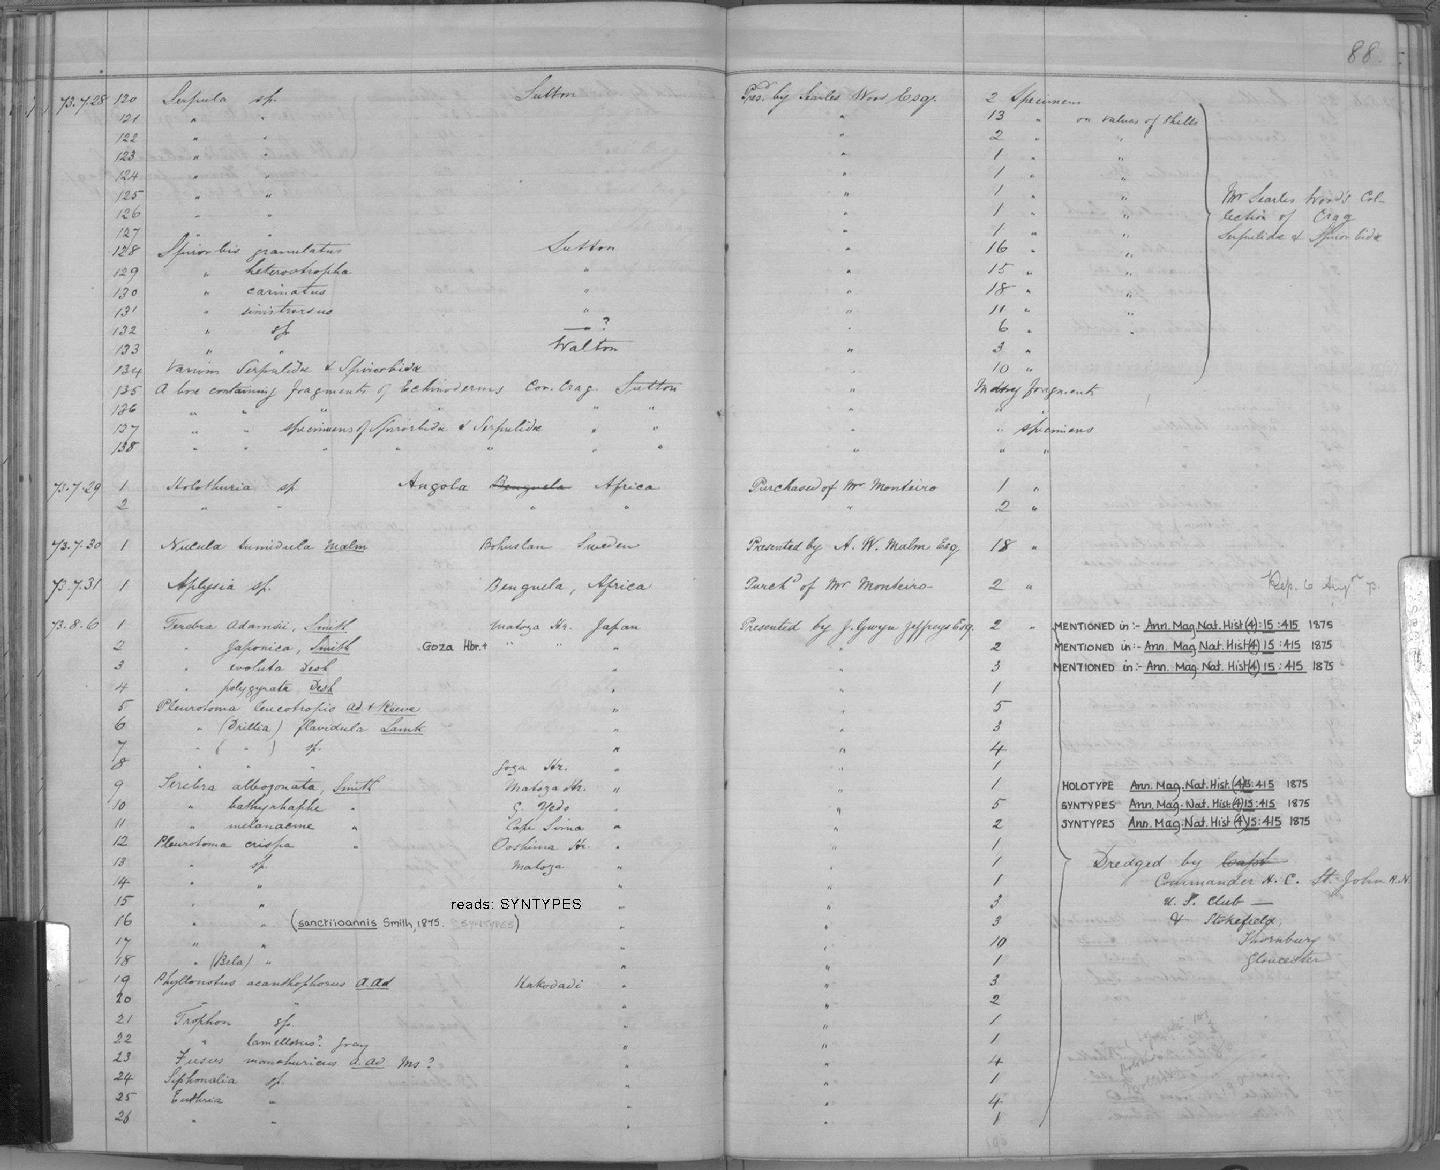 88.
73.7.28 120 Serpula sp. Sutton Pres.d by Searles Wood Esq. 2 Specimens
121 " " " 13 " on valves of shells
122 " " " 2 " "
123 " " " 1 " "
124 " " " 1 " "
125 " " " 1 " " Mr Searles Wood's Col-
126 " " " 1 " " lection of Crag
127 " " " 1 " " Serpulidæ & Spirorbidæ
128 Spirorbis granulatus Sutton " 16 " "
129 " heterostropha " " 15 " "
130 " carinatus " " 18 " "
131 " sinistrorsus " " 11 " "
132 " sp. — " ? " 6 " "
133 " " Walton " 3 "
134 Various Serpulidæ & Spirorbidæ 10 "
135 A box containing fragments of Echinoderms Cor. Crag. Sutton " Many fragments
136 " " " " " " " " "
137 " " specimens of Spirorbidæ & Serpulidæ " " " " specimens
138 " " " " " " " " " "
73.7.29 1 Holothuria sp Angola Benguela Africa Purchased of Mr Monteiro 1 "
2 " " " " " 2 "
73.7.30 1 Nucula tumidula Malm Bohuslan Sweden Presented by A. W. Malm Esq 18 "
73.7.31 1 Aplysia sp. Benguela, Africa Purch.d of Mr Monteiro 2 "
73.8.6 1 Terebra Adamsii, Smith Matoza Hr. Japan Presented by J. Gwyn Jeffreys Esq. 2 " MENTIONED in:- Ann. Mag. Nat. Hist (4):15:415 1875
2 " Japonica, Smith Goza Hbr.+ " " " " 2 MENTIONED in:- Ann. Mag. Nat. Hist (4) 15:415 1875
3 " evoluta Desh " " 3 MENTIONED in:- Ann. Mag. Nat. Hist (4) 15:415 1875
4 " polygyrata Desh " " 1
5 Pleurotoma leucotropis Ad & Reeve " " 5
6 " (Drillia) flavidula Lamk " " 3
7 " ( " ) sp. " " 4
8 " " " Goza Hr. " " 1
9 Terebra albozonata, Smith Matoza Hr. " " 1 HOLOTYPE Ann. Mag. Nat. Hist. (4)15:415 1875
10 " bathyrhaphe " G. Yedo " " 5 SYNTYPES Ann. Mag. Nat. Hist. (4)15:415 1875
11 " melanacme " Cape Sima " " 2 SYNTYPES Ann. Mag. Nat. Hist. (4)15:415 1875
12 Pleurotoma crispa " Ooshima Hr. " " 1
13 " sp. Matoza " " 1 Dredged by Capt
14 " " " " 1 Commander H. C. St. John R.N.
15 " " reads: SYNTYPES " " 3 U. S. Club —
16 " " (sanctiioannis Smith, 1875. SYNTYPES) " " 3 & Stokefield,
17 " " " " 10 Thornbury
18 " (Bela) " " " 1 Gloucester
19 Phyllonotus acanthophorus A. Ad Kakodadi " " 3
20 " " " " 2
21 Trophon sp. " " 1
22 " lamellosus? Gray " " 1
23 Fusus manchuricus A. Ad Ms? " " 4
24 Siphonalia sp. " " 1
25 Euthria " " " 4
26 " " " " 1